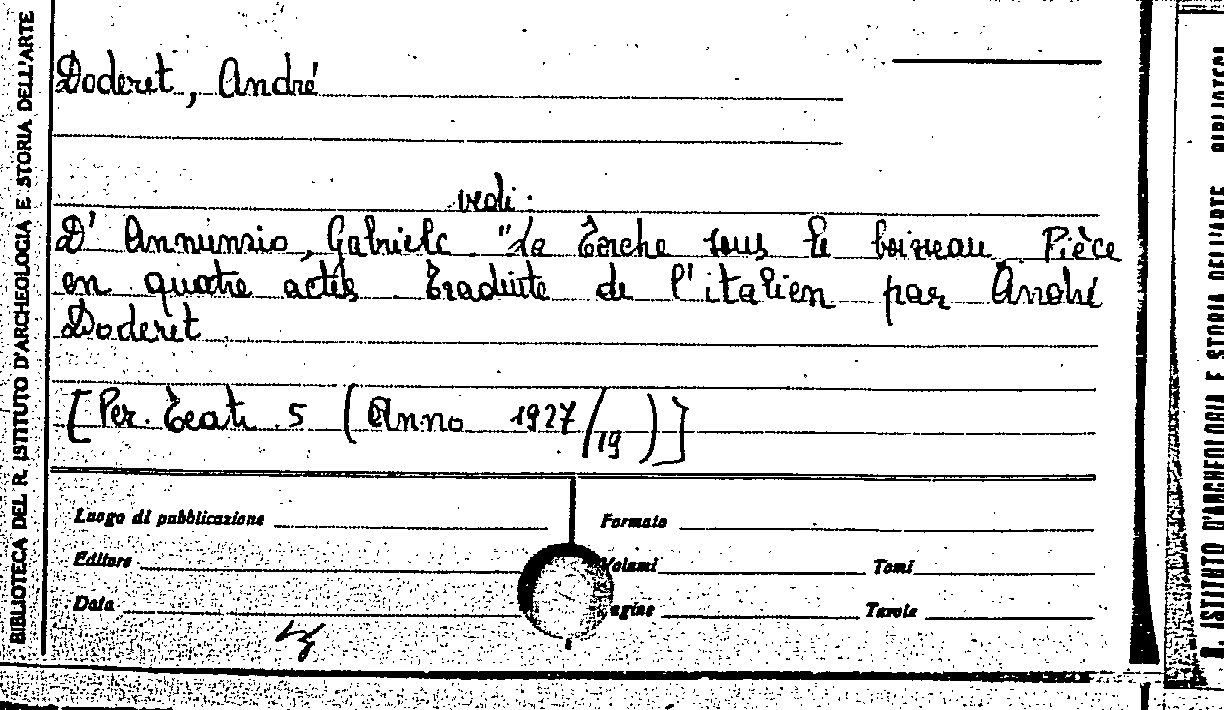 BIBLIOTECA DEL R. ISTITUTO D'ARCHEOLOGIA E STORIA DELL'ARTE
Doderet, André
vedi:
D'Annunzio, Gabriele "La Torche sous le boisseau. Pièce
en quatre actes. Traduite de l'italien par André
Doderet
[Per. Teat. 5 (Anno 1927/19)]
Luogo di pubblicazione
Formato
Editore
Volumi
Tomi
Data
Pagine
Tavole
R. ISTITUTO D'ARCHEOLOGIA E STORIA DELL'ARTE